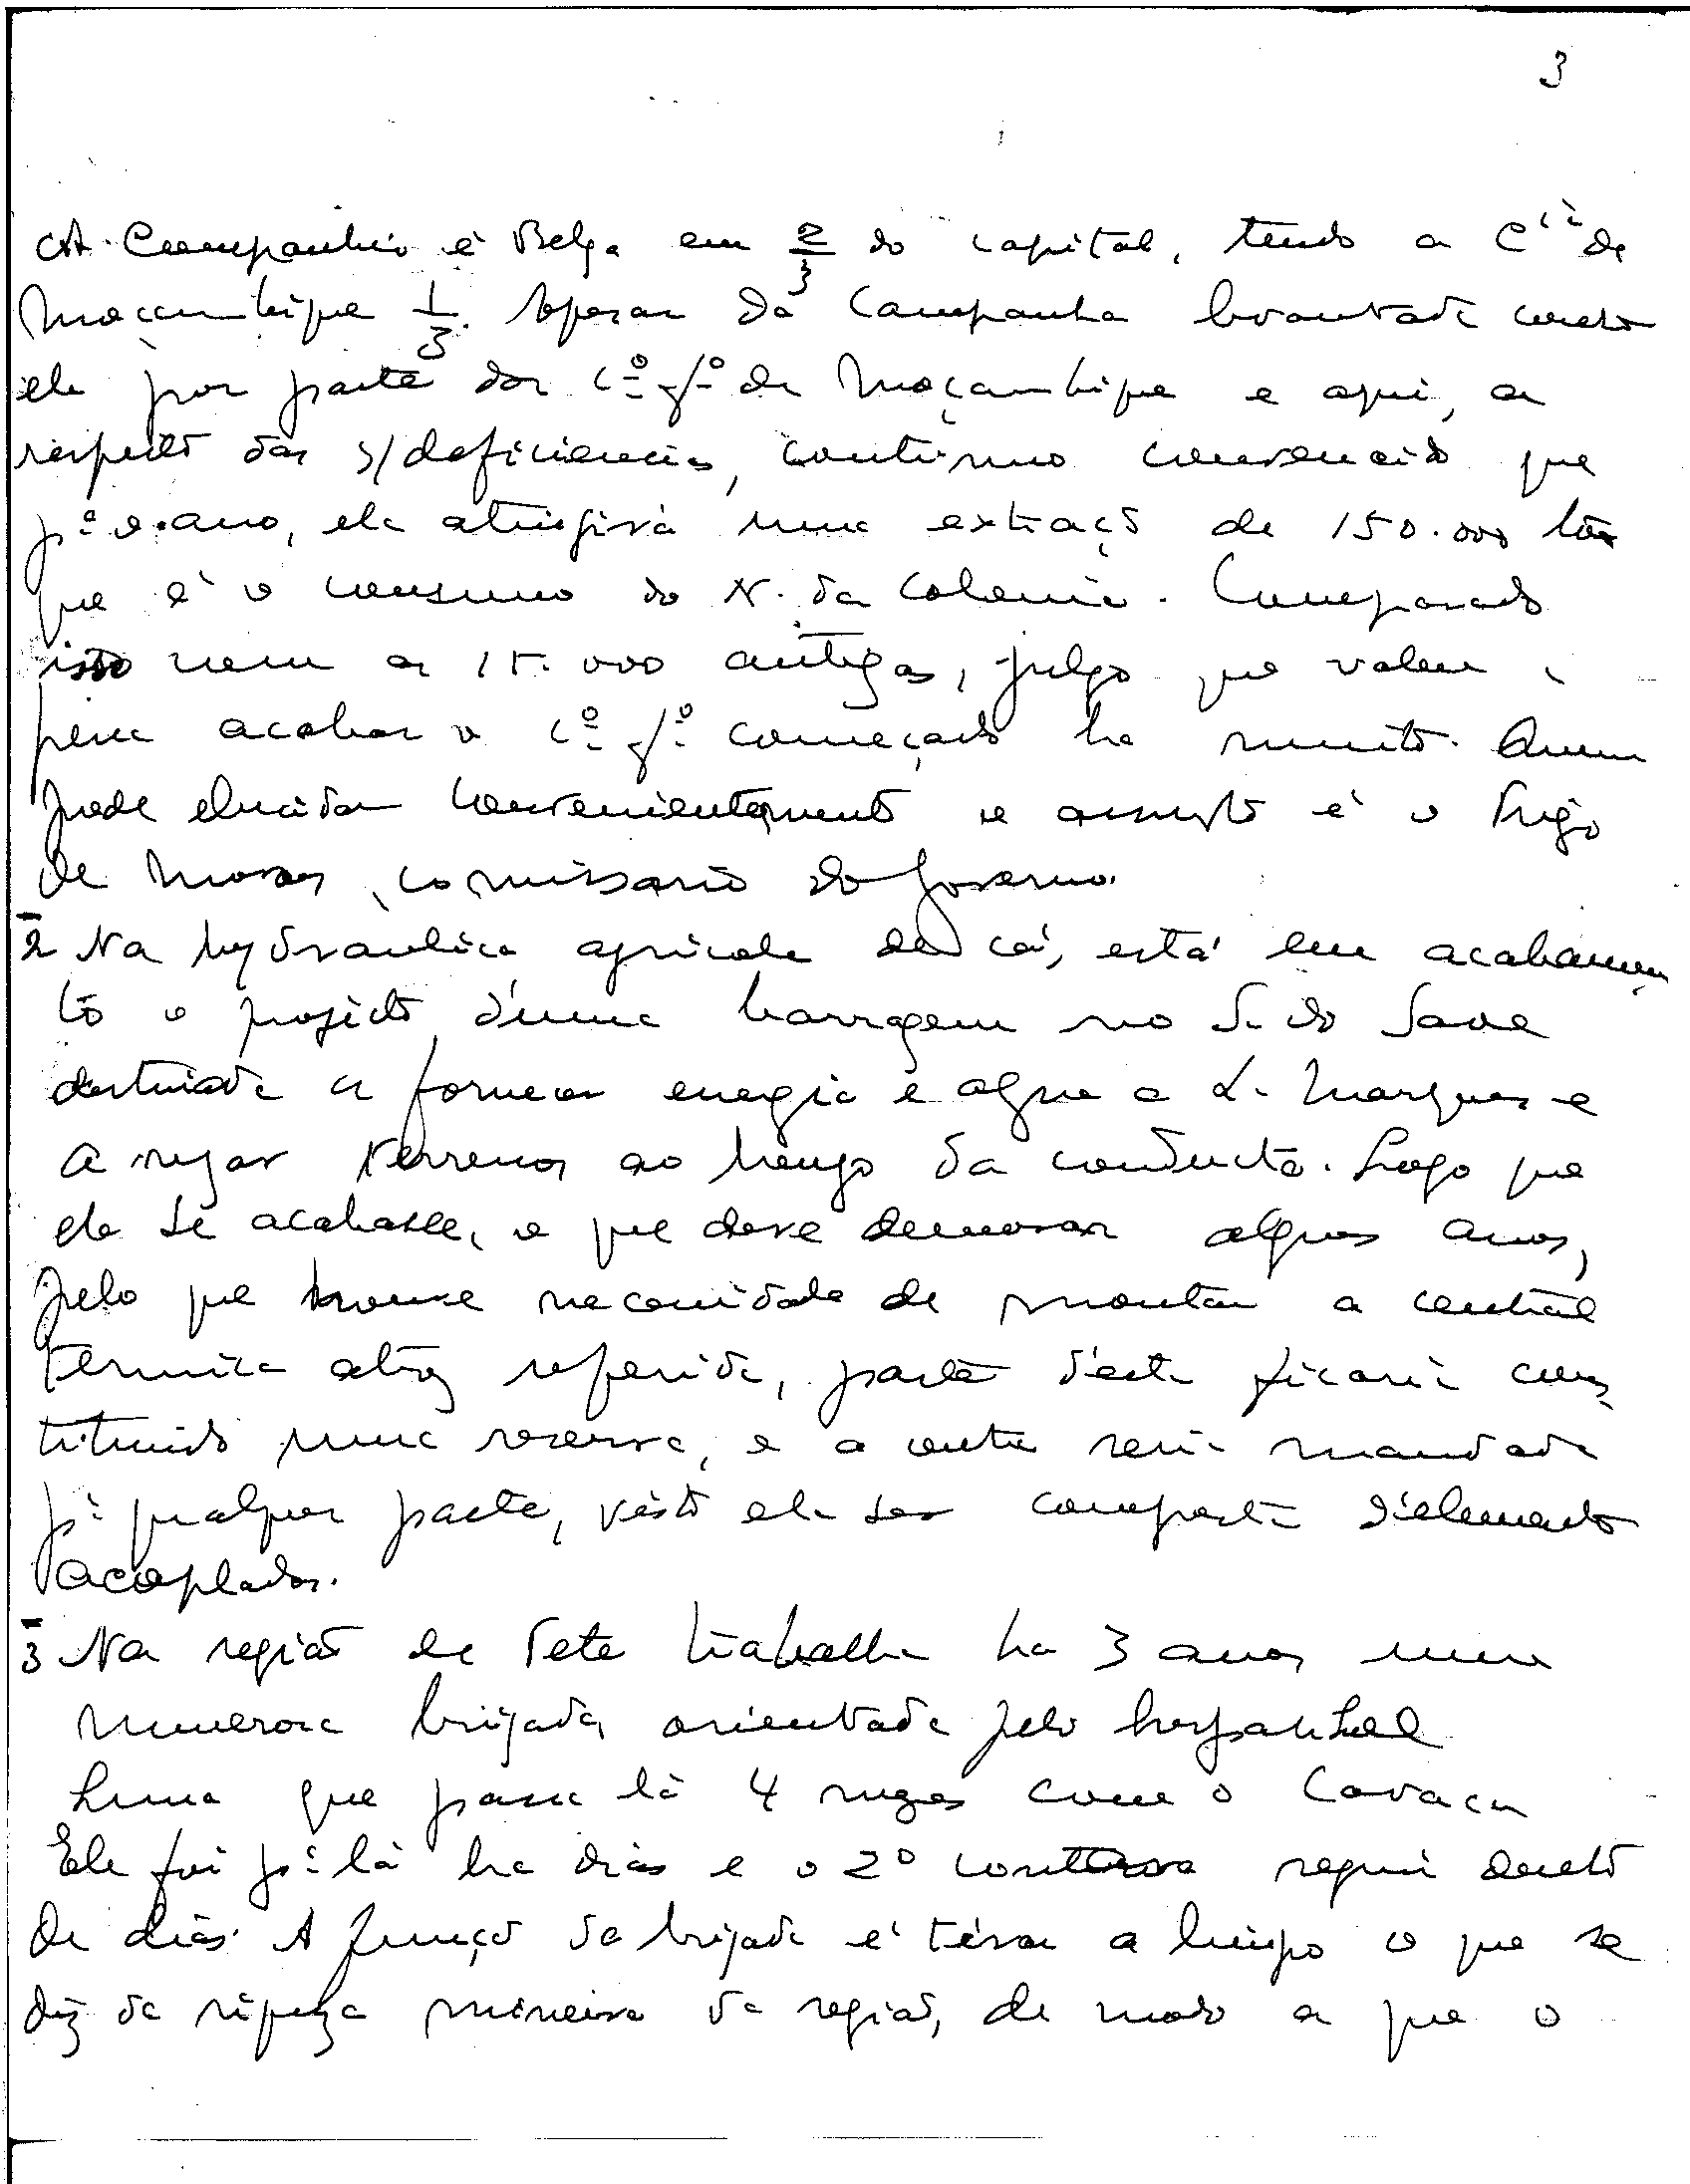 3
A Companhia é Belga em 2/3 do capital, tendo a Cia de
Moçambique 1/3. Apesar da campanha levantada contra
ela por parte dos C.os F.o de Moçambique e aqui, a
respeito das s/ deficiencias, continuo convencido que
pª o ano, ela atingirá uma extração de 150.000 tons
que é o consumo do N. da Colonia. Comparado
isto com as 15.000 antigas, julgo que valeu a
pena acabar o Cº Fº começado ha muito. Quem
pode elucidar convenientemente o assunto é o Trigo
de Moraes, comissario do Governo.
2 Na hydraulica agricola de cá, está em acabamen
to o projecto d'uma barragem no S. do Save
destinada a fornecer energia e agua a L. Marques e
a regar terrenos ao longo da conducta. Logo que
ela se acabasse, o que deve demorar alguns anos,
pelo que houve necessidade de montar a central
termica atraz referida, parte d'esta ficaria cons
tituindo uma reserva, e a outra seria mandada
pª qualquer parte, visto ela ser composta d'elementos
acoplados.
3 Na região de Tete trabalha ha 3 anos uma
numerosa brigada, orientada pelo hespanhol
que passa lá 4 mezes com o Cavaca
Ele foi pª lá ha dias e o 2º seguiu dentro
de dias. A função da brigada é tirar a limpo o que se
diz da riqueza mineira da região, de modo a que o